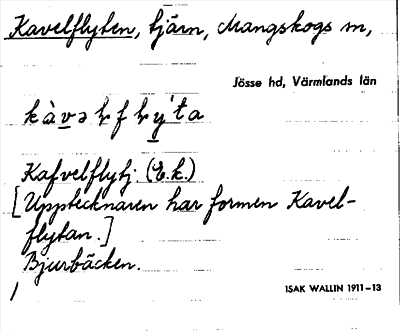 Kavelflyten, tjärn, Mangskogs sn,
Jösse hd, Värmlands län
Kafvelflytj. (E.k.)
[Upptecknaren har formen Kavel-
flytan.]
Bjurbäcken.
ISAK WALLIN 1911-13